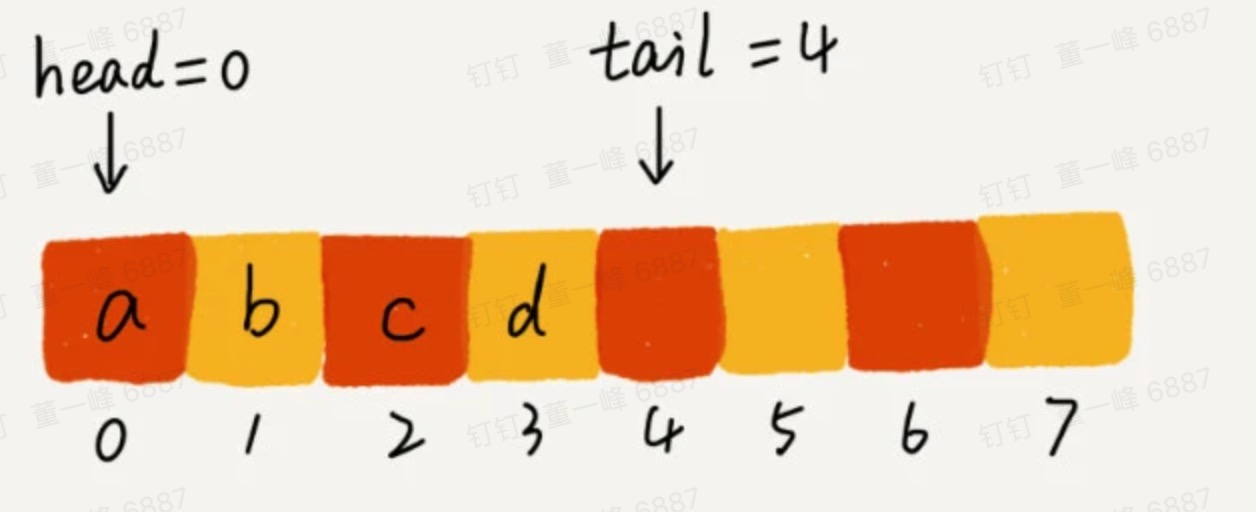 head=0 tail=4
a b c d
0 1 2 3 4 5 6 7
钉钉 董一峰 6887